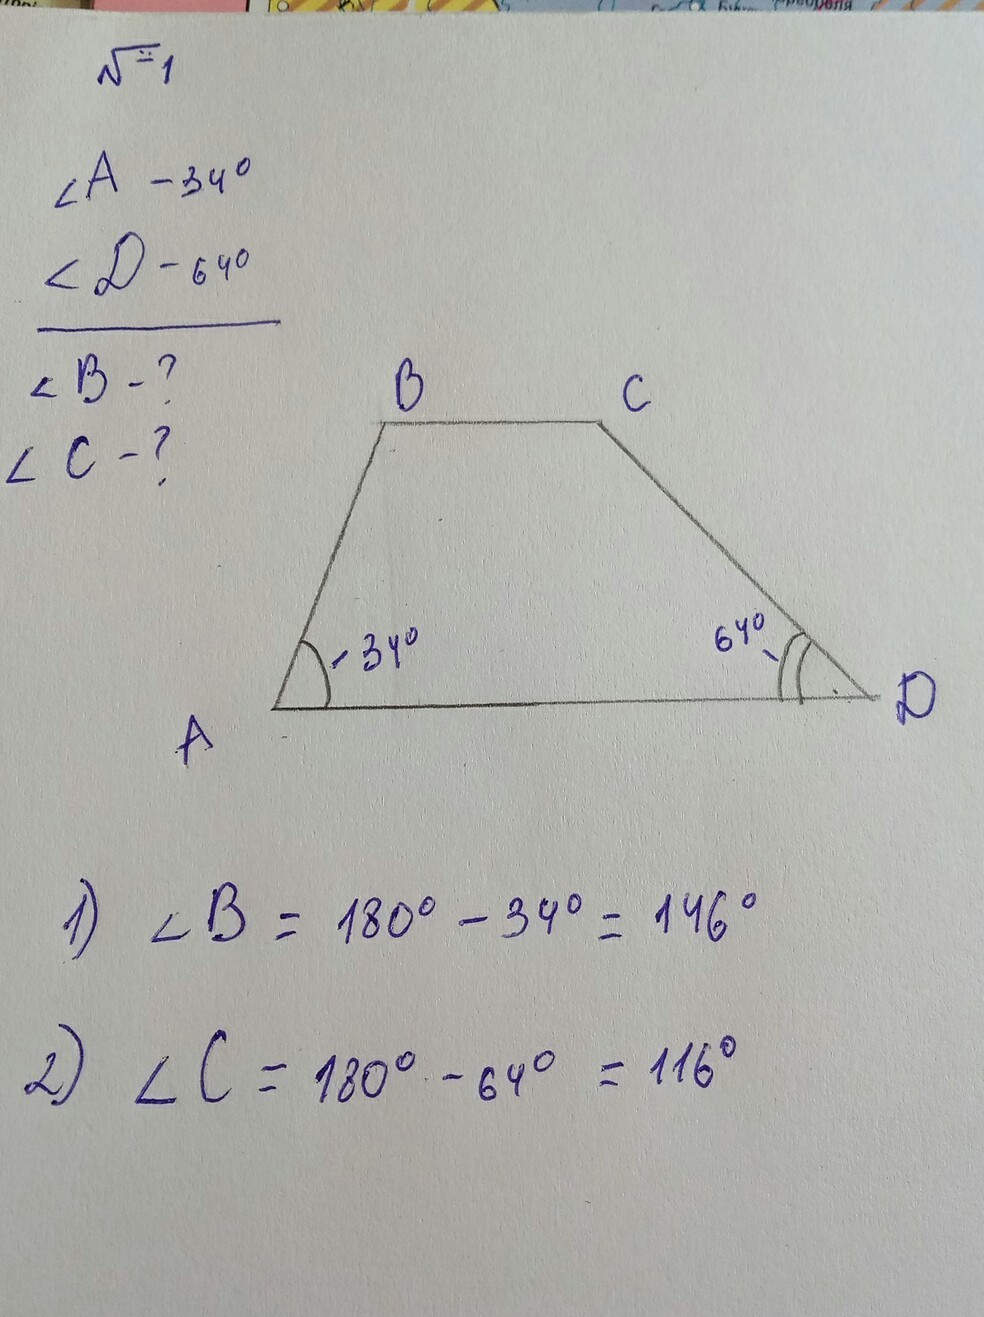 №1
∠A - 34°
∠D - 64°
∠B - ?
∠C - ?
B
C
34°
64°
A
D
1) ∠B = 180° - 34° = 146°
2) ∠C = 180° - 64° = 116°